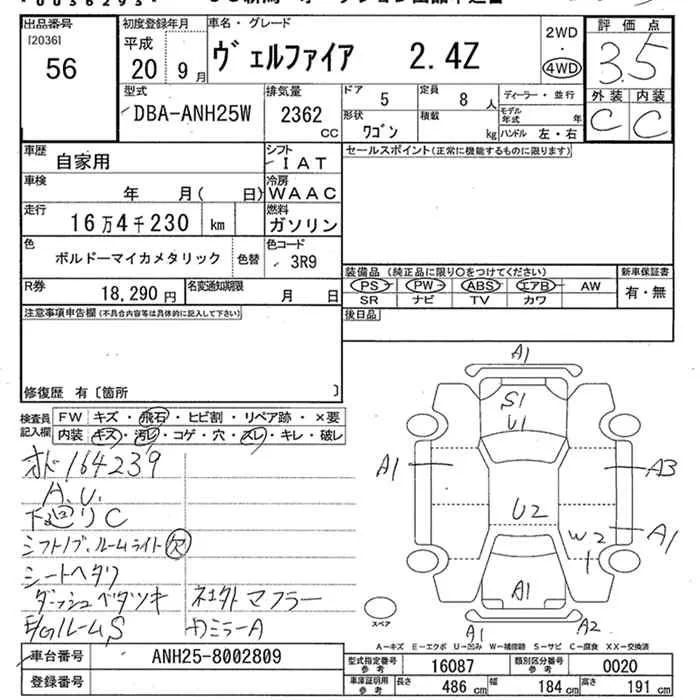 出品番号 初度登録年月 車名・グレード 2WD ・ 4WD 評価点
[2036] 56 平成 20 9月 ヴェルファイア 2.4Z 3.5
型式 排気量 ドア 定員 ディーラー・並行 外装 内装
DBA-ANH25W 2362 CC 5 8人 モデル年式 年 C C
形状 積載
ワゴン kg ハンドル 左・右
車歴 シフト セールスポイント(正常に機能するものに限ります)
自家用 IAT
車検 年 月( 日) 冷房 WAAC
走行 燃料
16万4千230 km ガソリン
色 色コード
ボルドーマイカメタリック 色替 3R9
装備品(純正品に限り○をつけてください) 新車保証書
R券 名変通知期限 PS PW ABS エアB AW 有・無
18,290円 月 日 SR ナビ TV カワ
注意事項申告欄(不具合内容等は具体的に記入して下さい) 後日品
修復歴 有〔箇所 〕
検査員記入欄 FW キズ・飛石・ヒビ割・リペア跡・×要
内装 キズ・汚レ・コゲ・穴・スレ・キレ・破レ
オド164239
A.U.
下廻りC
シフトノブ、ルームライト欠
シートヘタリ
ダッシュベタツキ ネエクトマフラー
E/GルームS カミラーA
A1
S1
U1
A1 A3
U2
W2 A1
1
A1
スペア A1 A2
A-キズ E-エクボ U-凹み W-補修跡 S-サビ C-腐食 XX-交換済
車台番号 ANH25-8002809 型式指定番号 参考 16087 類別区分番号 参考 0020
登録番号 車庫証明用 参考 長さ 486 cm 幅 184 cm 高さ 191 cm